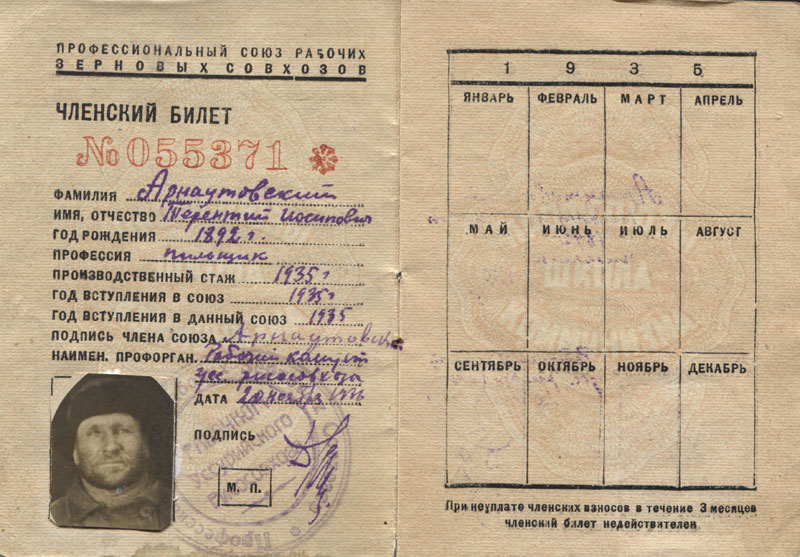 ПРОФЕССИОНАЛЬНЫЙ СОЮЗ РАБОЧИХ
ЗЕРНОВЫХ СОВХОЗОВ
ЧЛЕНСКИЙ БИЛЕТ
№ 055371
ФАМИЛИЯ Арнаутовский
ИМЯ, ОТЧЕСТВО Терентий Иосипович
ГОД РОЖДЕНИЯ 1892 г.
ПРОФЕССИЯ пильщик
ПРОИЗВОДСТВЕННЫЙ СТАЖ 1935 г
ГОД ВСТУПЛЕНИЯ В СОЮЗ 1935 г
ГОД ВСТУПЛЕНИЯ В ДАННЫЙ СОЮЗ 1935
ПОДПИСЬ ЧЛЕНА СОЮЗА Арнаутовск
НАИМЕН. ПРОФОРГАН. Рабочий
ДАТА 20
ПОДПИСЬ
М. П.
1935
ЯНВАРЬ ФЕВРАЛЬ МАРТ АПРЕЛЬ
МАЙ ИЮНЬ ИЮЛЬ АВГУСТ
СЕНТЯБРЬ ОКТЯБРЬ НОЯБРЬ ДЕКАБРЬ
При неуплате членских взносов в течение 3 месяцев
членский билет недействителен